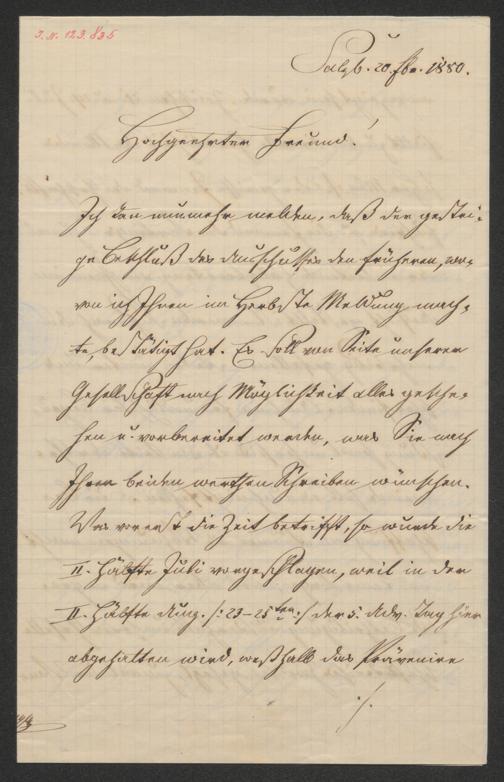 J. N. 123.835
Salzb. 20. Fbr. 1880.
Hochgeehrter Freund!
Ich kan nunmehr melden, daß der gestri-
ge Beschluß des Ausschusses den früheren, wo-
von ich Ihnen im Herbste Meldung mach-
te, bestätigt hat. Es soll von Seite unserer
Gesellschaft nach Möglichkeit alles gesche-
hen u. vorbereitet werden, was Sie nach
Ihren beiden werthen Schreiben wünschen.
Was vorerst die Zeit betrifft, so wurde die
II. Hälfte Juli vorgeschlagen, weil in der
II. Hälfte Aug. /: 23–25ten :/ der 5. Adv. Tag hier
abgehalten wird, weßhalb das Prävenire
./.